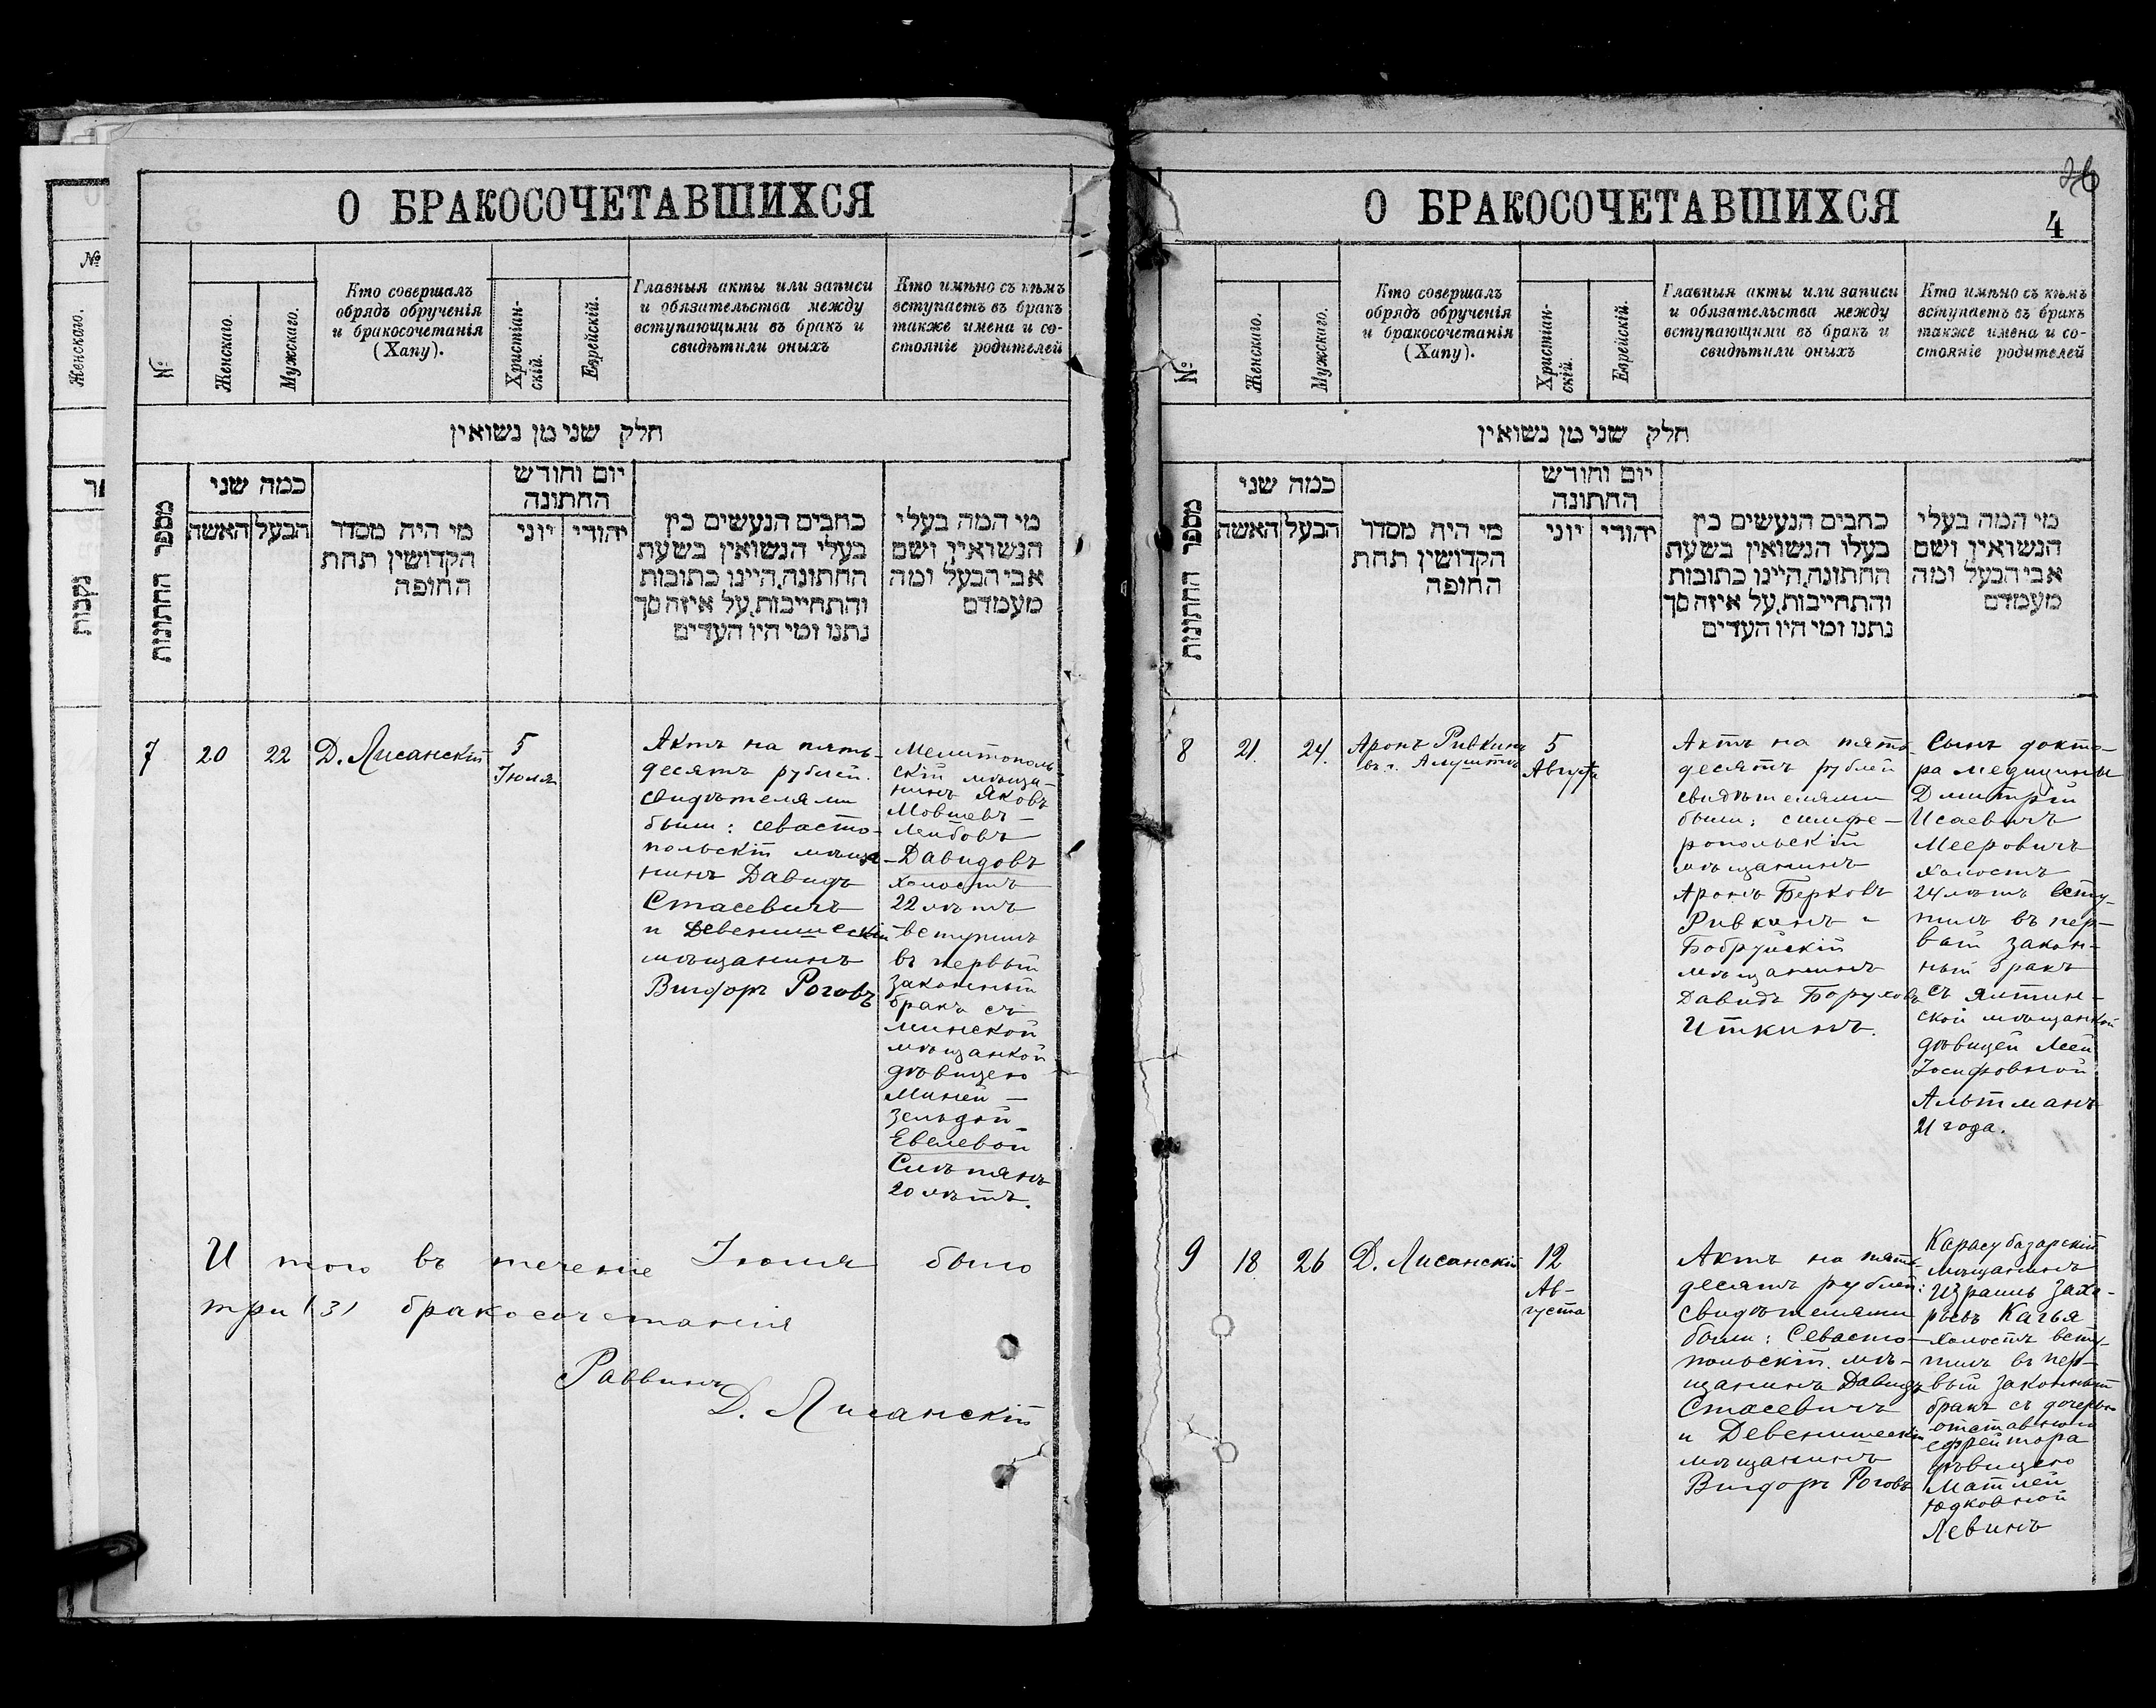 О БРАКОСОЧЕТАВШИХСЯ
№
Женскаго.
Мужскаго.
Кто совершалъ
обрядъ обрученія
и бракосочетанія
(Хапу).
Христіан-
скій.
Еврейскій.
Главныя акты или записи
и обязательства между
вступающими въ бракъ и
свидѣтили оныхъ
Кто имѣно съ кѣмъ
вступаетъ въ бракъ
также имена и со-
стояніе родителей
חלק שני מן נשואין
מספר החתונות
כמה שני
האשה
הבעל
מי היה מסדר
הקדושין תחת
החופה
יום וחודש
החתונה
יוני
יהודי
כתבים הנעשים בין
בעלי הנשואין בשעת
החתונה,היינו כתובות
והתחייבות,על איזה סך
נתנו ומי היו העדים
מי המה בעלי
הנשואין ושם
אבי הבעל ומה
מעמדם
7
20
22
Д. Лисанскій
5
Іюля
Актъ на пять-
десятъ рублей.
свидѣтелями
были: севасто-
польскій мѣща-
нинъ Давидъ
Стасевичъ
и Девенишескій
мѣщанинъ
Вигдоръ Роговъ
Мелитополь-
скій мѣща-
нинъ Яковъ
Мовшевъ-
Лейбовъ
Давидовъ
холостъ
22 лѣтъ
вступилъ
въ первый
законный
бракъ съ
минской
мѣщанкой
дѣвицею
Миней-
Зельдой-
Евелевой
20 лѣтъ.
Итого въ теченіе Іюля было
три (3) бракосочетанія
Раввинъ
Д. Лисанскій
О БРАКОСОЧЕТАВШИХСЯ
4
№
Женскаго.
Мужскаго.
Кто совершалъ
обрядъ обрученія
и бракосочетанія
(Хапу).
Христіан-
скій.
Еврейскій.
Главныя акты или записи
и обязательства между
вступающими въ бракъ и
свидѣтили оныхъ
Кто имѣно съ кѣмъ
вступаетъ въ бракъ
также имена и со-
стояніе родителей
חלק שני מן נשואין
מספר החתונות
כמה שני
האשה
הבעל
מי היה מסדר
הקדושין תחת
החופה
יום וחודש
החתונה
יוני
יהודי
כתבים הנעשים בין
בעלו הנשואין בשעת
החתונה,היינו כתובות
והתחייבות,על איזה סך
נתנו ומי היו העדים
מי המה בעלי
הנשואין ושם
אבי הבעל ומה
מעמדם
8
21.
24.
Аронъ Ривкинъ
въ г. Алуштѣ
5
Августа
Актъ на пять-
десятъ рублей
свидѣтелями
были: симфе-
ропольскій
мѣщанинъ
Аронъ Берковъ
Ривкинъ и
Бобруйскій
мѣщанинъ
Давидъ Боруховъ
Иткинъ.
Сынъ докто-
ра медицины
Дмитрій
Исаевичъ
Мееровичъ
холостъ
24 лѣтъ всту-
пилъ въ пер-
вый закон-
ный бракъ
съ ялтин-
ской мѣщанкой
дѣвицей Леей
Іосифовной
Альтманъ
21 года.
9
18
26
Д. Лисанскій
12
Ав-
густа
Актъ на пять-
десятъ рублей:
свидѣтелями
были: Севасто-
польскій мѣ-
щанинъ Давидъ
Стасевичъ
и Девенишескій
мѣщанинъ
Вигдоръ Роговъ
Карасубазарскій
мѣщанинъ
Израиль Заха-
рьевъ Качья
холостъ всту-
пилъ въ пер-
вый законный
бракъ съ дочерью
отставного
ефрейтора
дѣвицею
Матлей
Юдковной
Левинъ